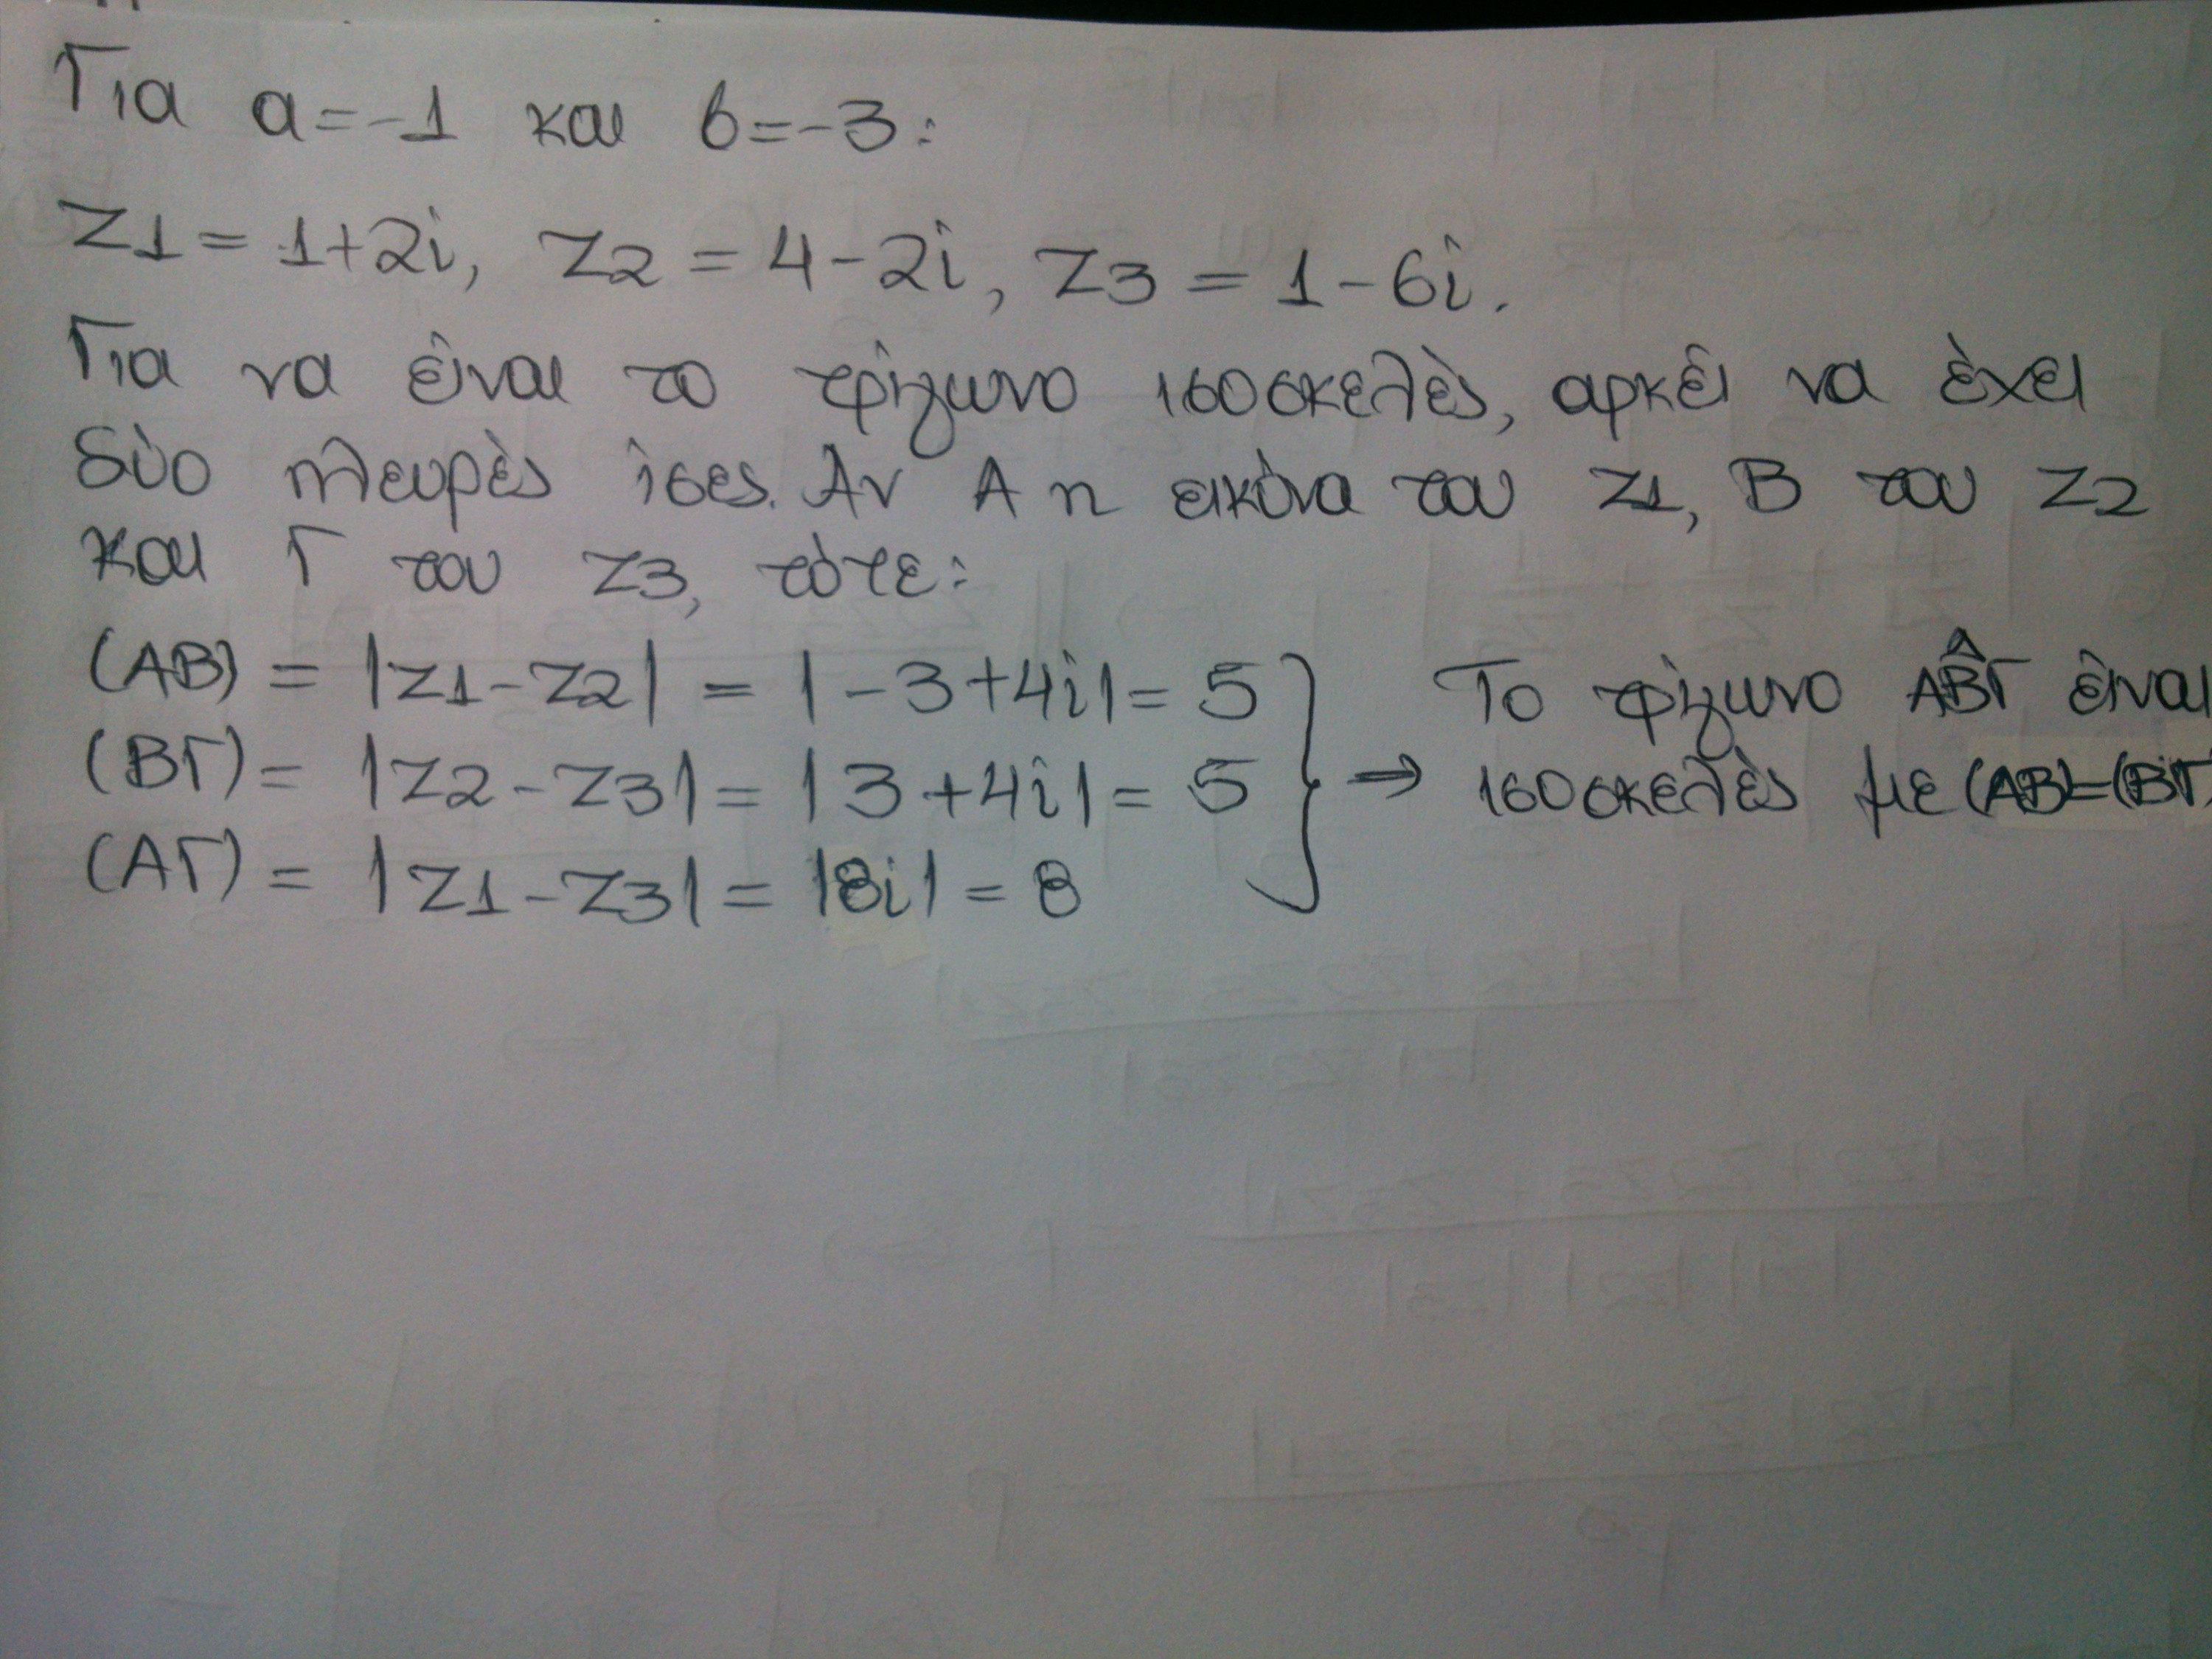 Για α=-1 και β=-3:
Z1 = 1+2i, Z2 = 4-2i, Z3 = 1-6i.
Για να είναι το τρίγωνο ισοσκελές, αρκεί να έχει
δύο πλευρές ίσες. Αν Α η εικόνα του Z1, Β του Z2
και Γ του Z3, τότε:
(ΑΒ) = |Z1-Z2| = |-3+4i| = 5
(ΒΓ) = |Z2-Z3| = |3+4i| = 5
(ΑΓ) = |Z1-Z3| = |8i| = 8
} ⇒ Το τρίγωνο ΑΒ̂Γ είναι
ισοσκελές με (ΑΒ)=(ΒΓ)